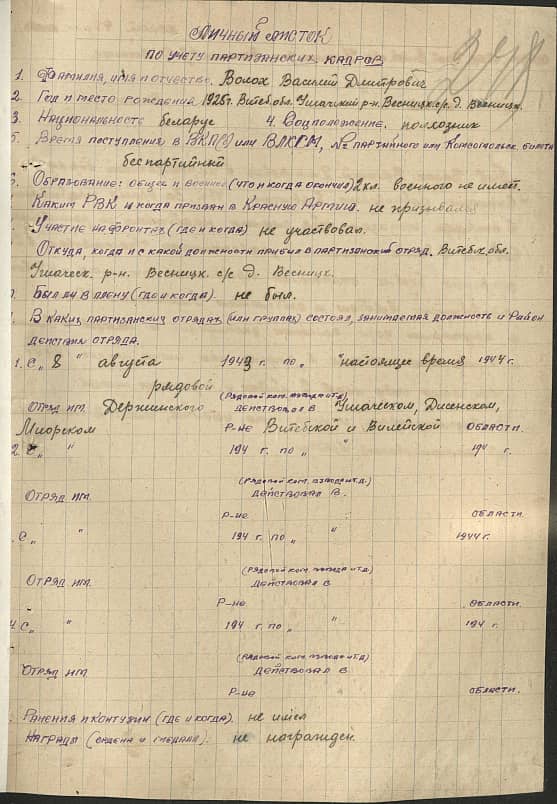 Личный листок
по учету партизанских кадров
1. Фамилия, имя и отчество. Волох Василий Дмитрович
2. Год и место рождения 1925г. Витеб.обл. Ушачский р-н. Весницк. с/с д. Весницк.
3. Национальность беларус 4. Соцположение. колхозник
5. Время поступления в ВКП(б) или ВЛКСМ, № партийного или комсомольск. билета
беспартийный
6. Образование: общее и военное (что и когда окончил) 2 кл. военного не имет.
Каким РВК и когда призван в Красную Армию. не призывался
Участие на фронтах (где и когда) не участвовал.
Откуда, когда и с какой должности прибыл в партизанский отряд. Витебск. обл.
Ушачск. р-н. Весницк. с/с д. Весницк.
Был ли в плену (где и когда). не был.
В каких партизанских отрядах (или группах) состоял, занимаемая должность и район
действия отряда.
1. С „ 8 " августа 1943 г. по „ "настоящее время 1944 г.
рядовой (рядовой ком. взвода и т.д.)
Отряд им. Держинского действовал в Ушачском, Дисенском,
Миорском р-не Витебской и Вилейской области.
2. С „ " 194 г. по „ " 194 г.
(рядовой ком. взвода и т.д.)
Отряд им. действовал в.
р-не области.
С „ " 194 г. по „ " 1944 г.
(рядовой ком. взвода и т.д.)
Отряд им. действовал в
р-не области.
4. С „ " 194 г. по „ " 194 г.
(рядовой ком. взвода и т.д.)
Отряд им. действовал в
р-не области.
Ранения и контузии (где и когда). не имел
Награды (ордена и медали). не награжден.